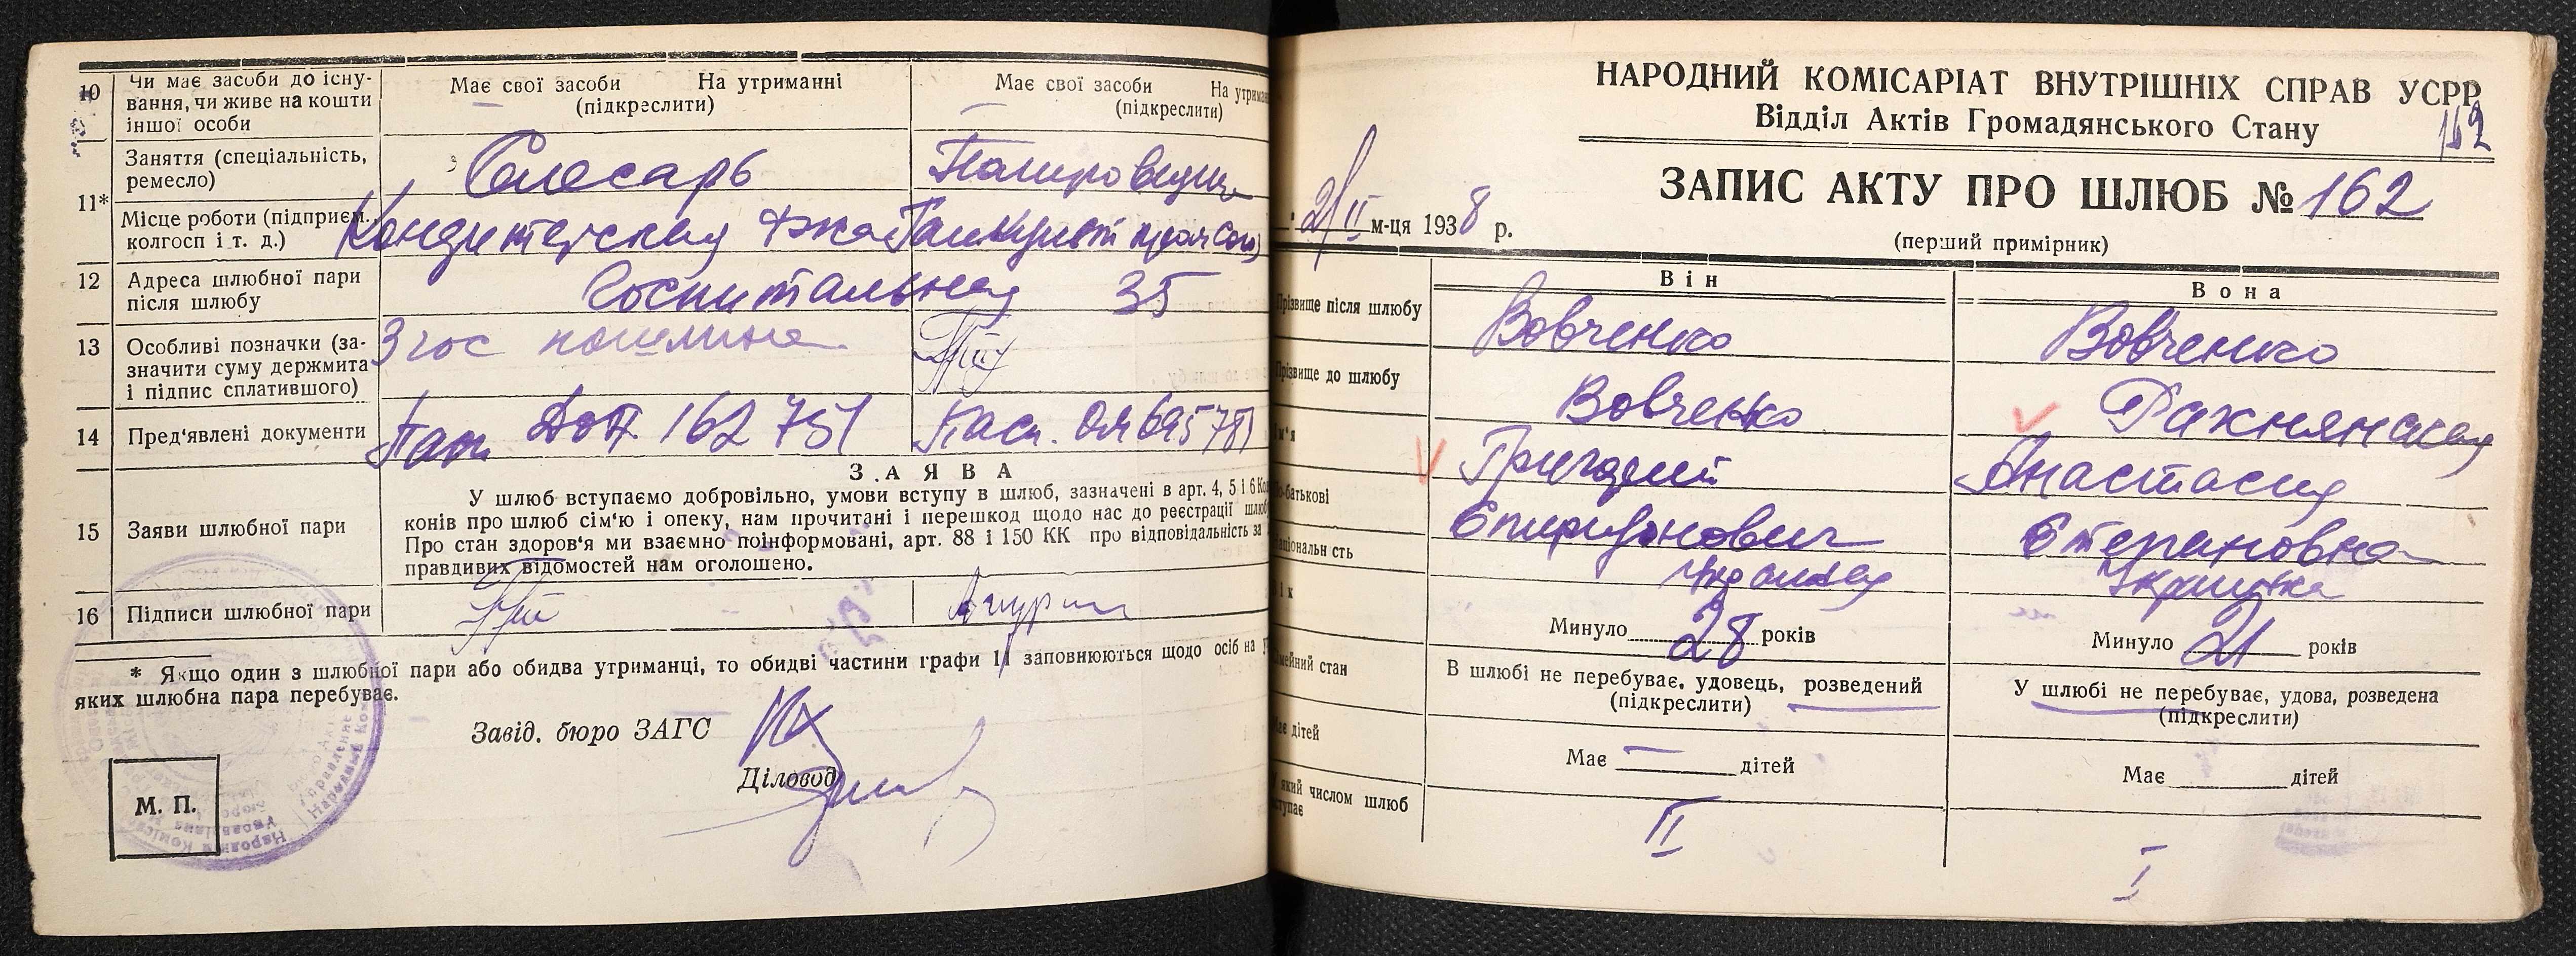 10
Чи має засоби до існу-
вання, чи живе на кошти
іншої особи
Має свої засоби На утриманні
(підкреслити)
Має свої засоби На утриман
(підкреслити)
11*
Заняття (спеціальність,
ремесло)
Слесарь
Місце роботи (підприєм.,
колгосп і т. д.)
Кондитерская
12
Адреса шлюбної пари
після шлюбу
Госпитальная 35
13
Особливі позначки (за-
значити суму держмита
і підпис сплатившого)
3 гос пошлина
14
Пред'явлені документи
162751
Пасп. 695781
15
Заяви шлюбної пари
ЗАЯВА
У шлюб вступаємо добровільно, умови вступу в шлюб, зазначені в арт. 4, 5 і 6 Ко
конів про шлюб сім'ю і опеку, нам прочитані і перешкод щодо нас до реєстрації шлюб
Про стан здоров'я ми взаємно поінформовані, арт. 88 і 150 КК про відповідальність за
правдивих відомостей нам оголошено.
16
Підписи шлюбної пари
* Якщо один з шлюбної пари або обидва утриманці, то обидві частини графи 11 заповнюються щодо осіб на у
яких шлюбна пара перебуває.
Завід. бюро ЗАГС
Діловод
М. П.
НАРОДНИЙ КОМІСАРІАТ ВНУТРІШНІХ СПРАВ УСРР
Відділ Актів Громадянського Стану
162
ЗАПИС АКТУ ПРО ШЛЮБ № 162
(перший примірник)
21 II м-ця 1938 р.
Він
Вона
Прізвище після шлюбу
Вовченко
Вовченко
Прізвище до шлюбу
Вовченко
Рахнянская
Ім'я
Григорий
Анастасия
По-батькові
Спиридонович
Степановна
Національність
Українка
Вік
Минуло 28 років
Минуло 21 років
Сімейний стан
В шлюбі не перебуває, удовець, розведений
(підкреслити)
У шлюбі не перебуває, удова, розведена
(підкреслити)
Має дітей
Має — дітей
Має дітей
У який числом шлюб
вступає
II
I